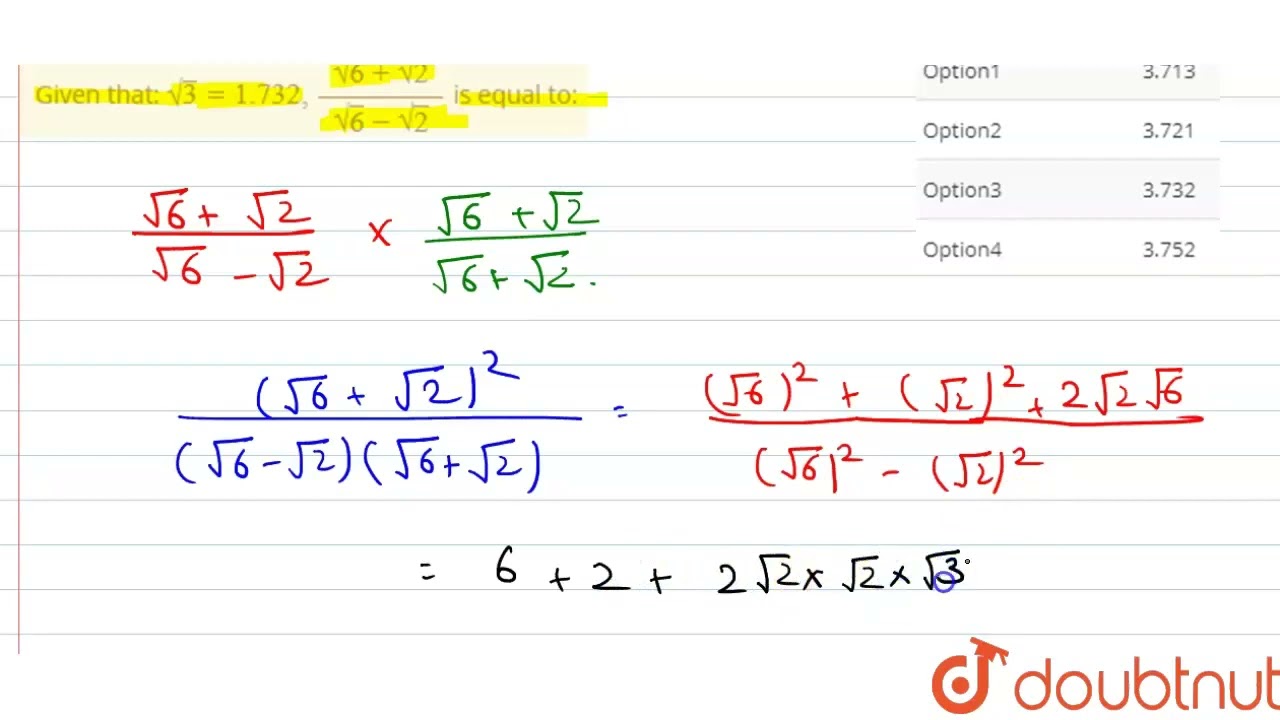 Given that: √3 = 1.732, (√6 + √2)/(√6 − √2) is equal to:
Option1 3.713
Option2 3.721
Option3 3.732
Option4 3.752
(√6 + √2)/(√6 − √2) × (√6 + √2)/(√6 + √2).
(√6 + √2)²/((√6 − √2)(√6 + √2)) = ((√6)² + (√2)² + 2√2√6)/((√6)² − (√2)²)
= 6 + 2 + 2√2 × √2 × √3
doubtnut